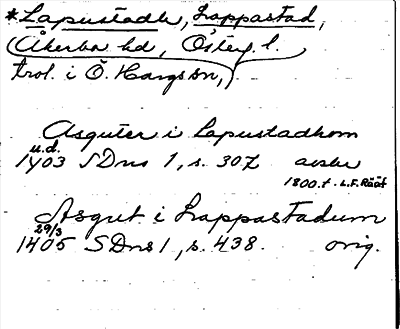 *Lapustadh, Lappastad,
Åkerbo hd, Österg. l.
trol. i Ö. Hargs sn,
Asguter i Lapustadhom
u.d.
1403 SDns 1, s. 307 avskr
1800.t. L.F. Rääf
Asgut i Lappastadum
29/3
1405 SDns 1, s. 438. orig.